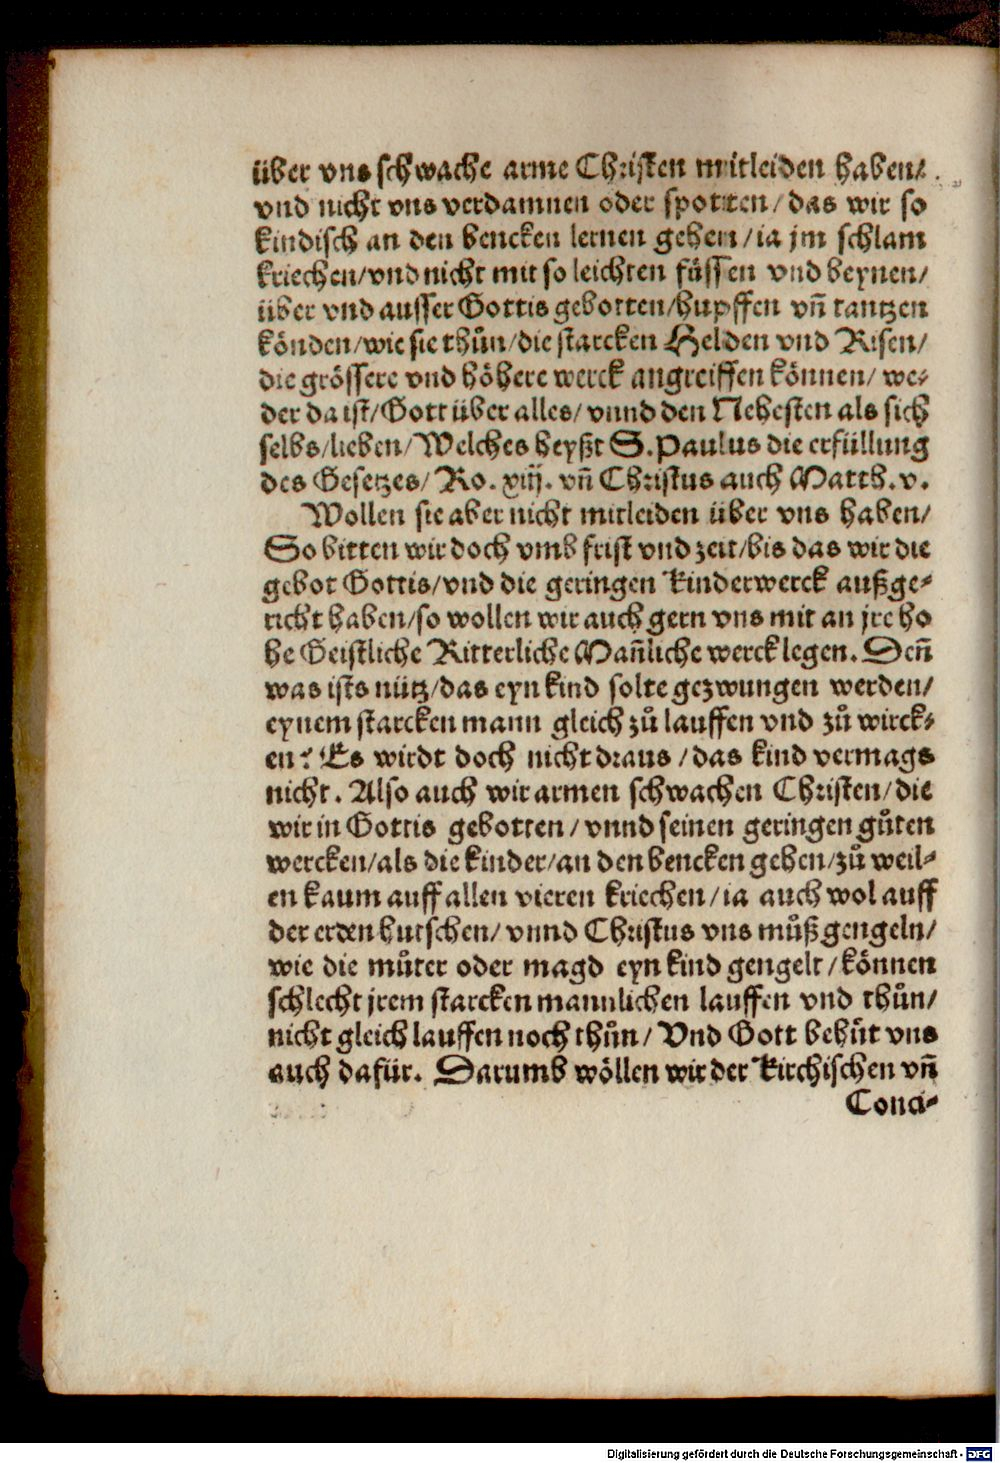 über vns schwache arme Christen mitleiden haben/
vnd nicht vns verdamnen oder spotten/ das wir so
kindisch an den bencken lernen gehen/ ia jm schlam
kriechen/ vnd nicht mit so leichten füssen vnd beynen/
über vnd ausser Gottis gebotten/ hupffen vñ tantzen
könden/ wie sie thůn/ die starcken Helden vnd Risen/
die grössere vnd höhere werck angreiffen können/ we⸗
der da ist/ Gott über alles/ vnnd den Nehesten als sich
selbs/ lieben/ Welches heyßt S. Paulus die erfüllung
des Gesetzes/ Ro. xiij. vñ Christus auch Matth. v.
Wollen sie aber nicht mitleiden über vns haben/
So bitten wir doch vmb frist vnd zeit/ bis das wir die
gebot Gottis/ vnd die geringen Kinderwerck außge⸗
richt haben/ so wollen wir auch gern vns mit an jre ho
he Geistliche Ritterliche Mañliche werck legen. Deñ
was ists nütz/ das eyn kind solte gezwungen werden/
eynem starcken mann gleich zů lauffen vnd zů wirck⸗
en? Es wirdt doch nicht draus / das kind vermags
nicht. Also auch wir armen schwachen Christen/ die
wir in Gottis gebotten/ vnnd seinen geringen gůten
wercken/ als die kinder/ an den bencken gehen/ zů weil⸗
en kaum auff allen vieren kriechen/ ia auch wol auff
der erden hutschen/ vnnd Christus vns můß gengeln/
wie die můter oder magd eyn kind gengelt/ können
schlecht jrem starcken mannlichen lauffen vnd thůn/
nicht gleich lauffen noch thůn/ Vnd Gott behüt vns
auch dafür. Darumb wöllen wir der Kirchischen vñ
Conci⸗
Digitalisierung gefördert durch die Deutsche Forschungsgemeinschaft - DFG